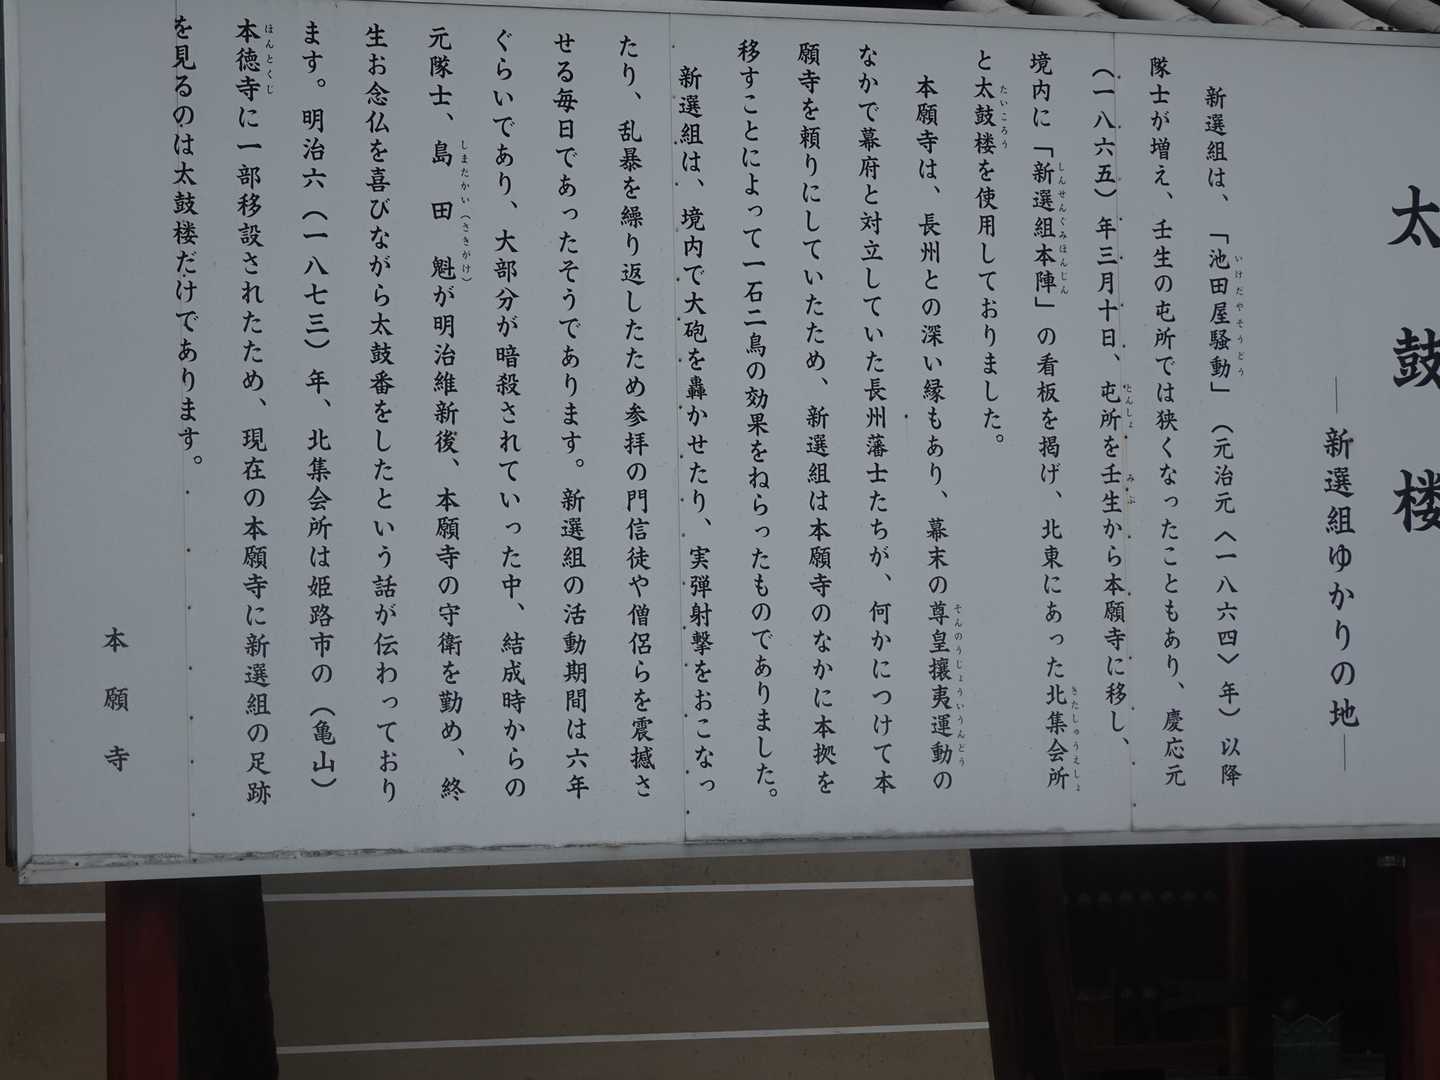 太鼓楼
―新選組ゆかりの地―
新選組は、「池田屋騒動」（元治元〈一八六四〉年）以降
いけだやそうどう
隊士が増え、壬生の屯所では狭くなったこともあり、慶応元
（一八六五）年三月十日、屯所を壬生から本願寺に移し、
とんしょ
みぶ
境内に「新選組本陣」の看板を掲げ、北東にあった北集会所
しんせんぐみほんじん
きたしゅうえしょ
と太鼓楼を使用しておりました。
たいころう
本願寺は、長州との深い縁もあり、幕末の尊皇攘夷運動の
そんのうじょういうんどう
なかで幕府と対立していた長州藩士たちが、何かにつけて本
願寺を頼りにしていたため、新選組は本願寺のなかに本拠を
移すことによって一石二鳥の効果をねらったものでありました。
新選組は、境内で大砲を轟かせたり、実弾射撃をおこなっ
たり、乱暴を繰り返したため参拝の門信徒や僧侶らを震撼さ
せる毎日であったそうであります。新選組の活動期間は六年
ぐらいであり、大部分が暗殺されていった中、結成時からの
元隊士、島田魁が明治維新後、本願寺の守衛を勤め、終
しまだかい（さきがけ）
生お念仏を喜びながら太鼓番をしたという話が伝わっており
ます。明治六（一八七三）年、北集会所は姫路市の（亀山）
本徳寺に一部移設されたため、現在の本願寺に新選組の足跡
ほんとくじ
を見るのは太鼓楼だけであります。
本願寺